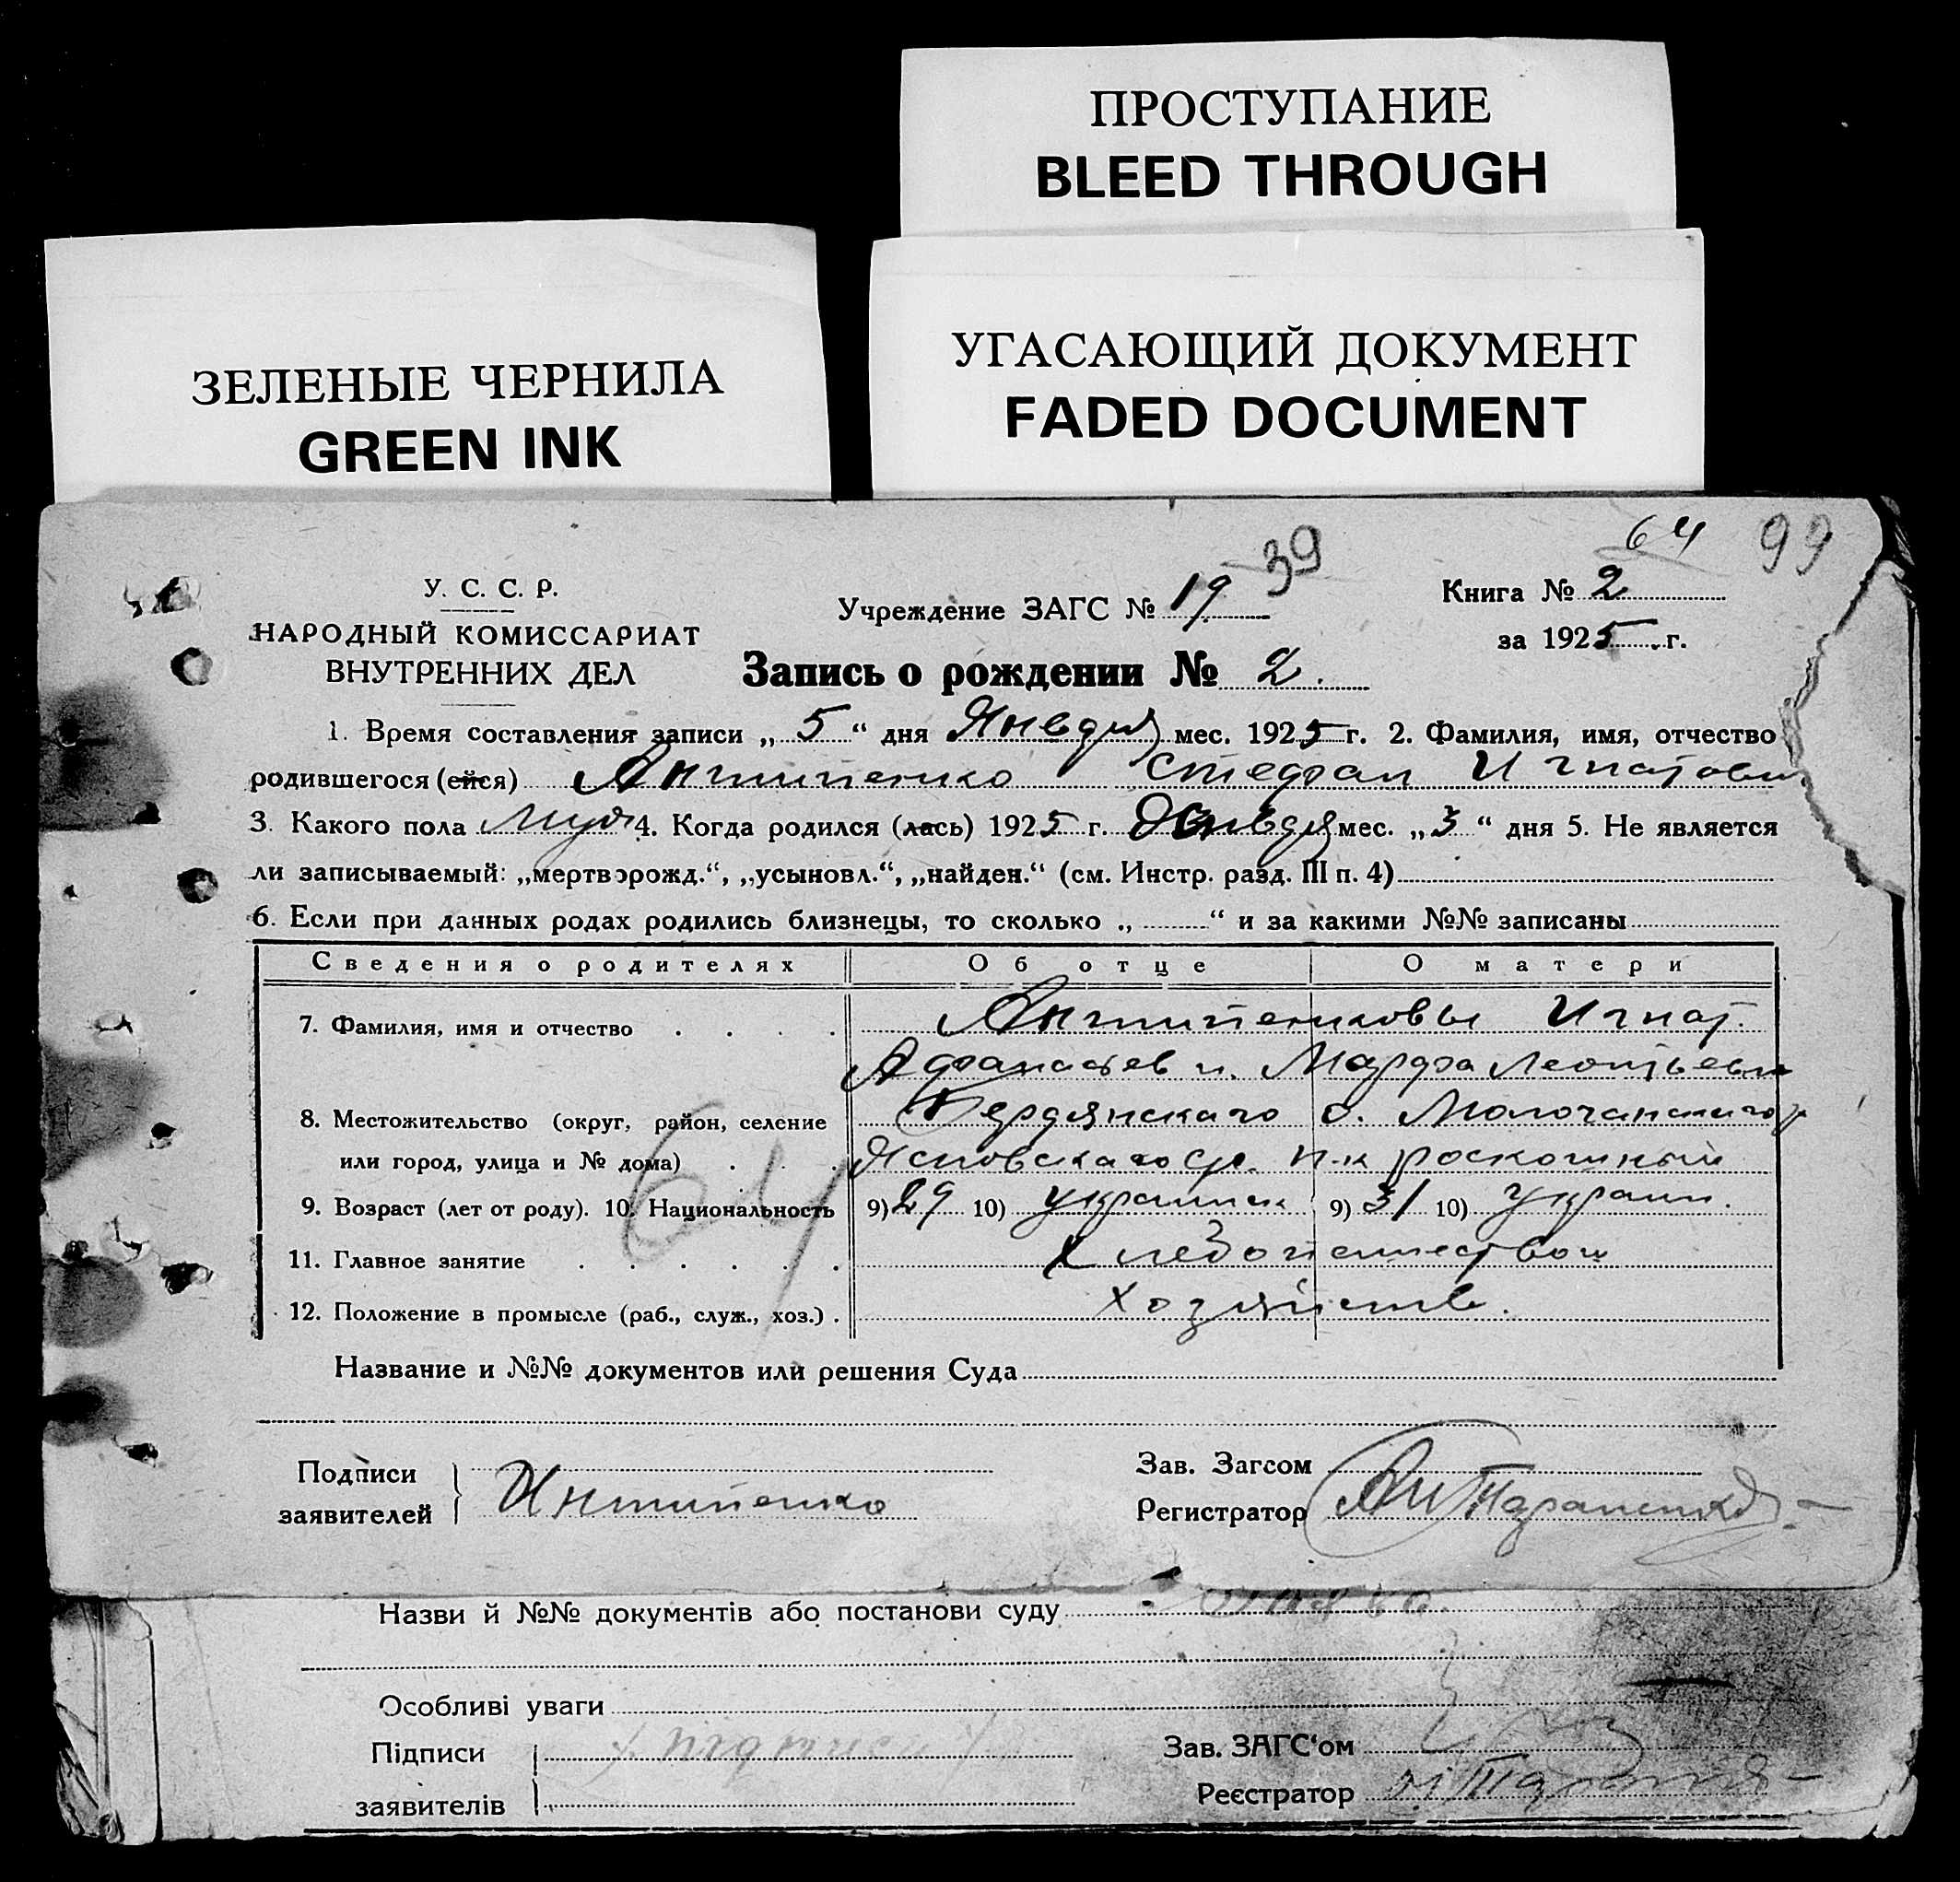 ПРОСТУПАНИЕ
BLEED THROUGH
ЗЕЛЕНЫЕ ЧЕРНИЛА
GREEN INK
УГАСАЮЩИЙ ДОКУМЕНТ
FADED DOCUMENT
64 99
39
У. С. С. Р.
НАРОДНЫЙ КОМИССАРИАТ
ВНУТРЕННИХ ДЕЛ
Учреждение ЗАГС № 19
Книга № 2
за 1925 г.
Запись о рождении № 2.
1. Время составления записи „ 5 “ дня Января мес. 1925 г. 2. Фамилия, имя, отчество
родившегося (ейся) Антипенко Стефан Игнатов
3. Какого пола Муж 4. Когда родился (лась) 1925 г. Января мес. „ 3 “ дня 5. Не является
ли записываемый: „мертворожд.“, „усыновл.“, „найден.“ (см. Инстр. разд. III п. 4)
6. Если при данных родах родились близнецы, то сколько „ “ и за какими №№ записаны
Сведения о родителях Об отце О матери
7. Фамилия, имя и отчество Антипенковы Игнат.
Афанасьев и. Марфа Леонтьевн
8. Местожительство (округ, район, селение Бердянскаго о. Молочанскаго р
или город, улица и № дома) п-к роскошный
9. Возраст (лет от роду). 10. Национальность 9) 29 10) украинск 9) 31 10) украин.
64
11. Главное занятие Хлебопашеством
12. Положение в промысле (раб., служ., хоз.) Хозяйств.
Название и №№ документов или решения Суда
Подписи
заявителей
Антипенко
Зав. Загсом
Регистратор
Назви й №№ документів або постанови суду
Особливі уваги
Підписи
заявителів
Зав. ЗАГС‘ом
Реєстратор